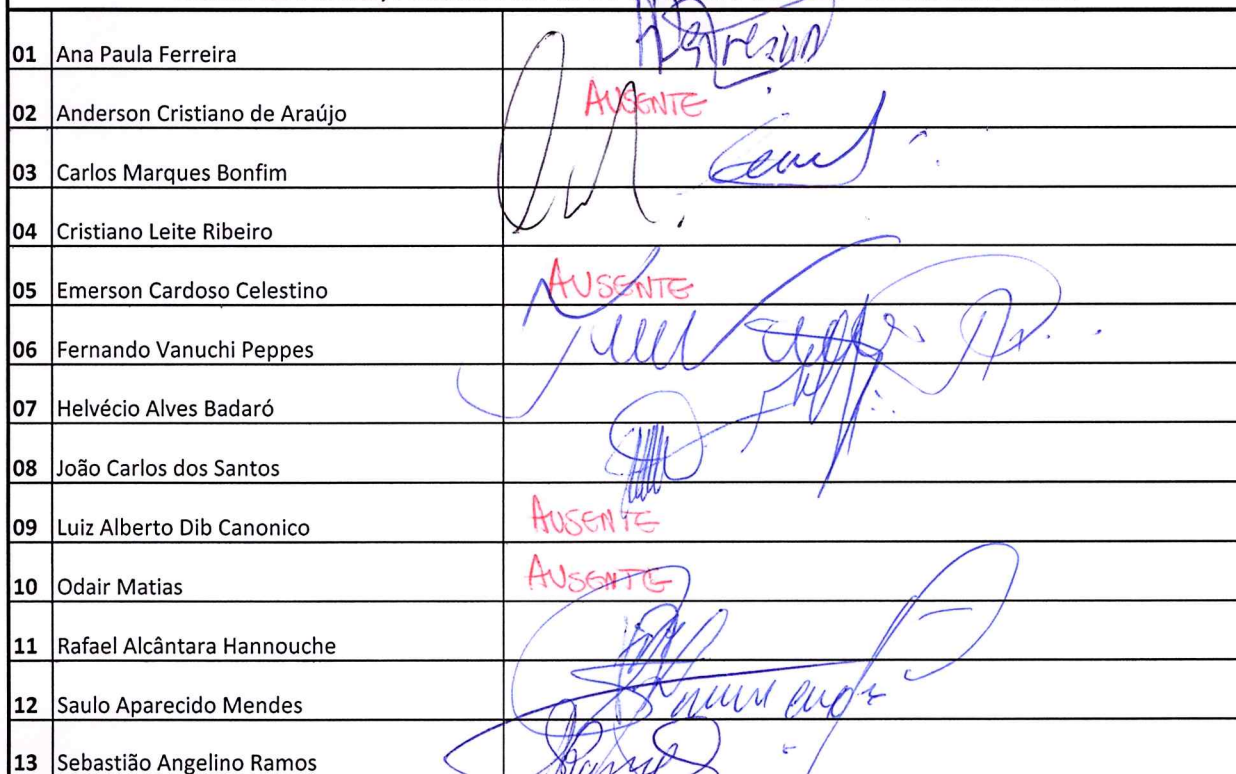 01 Ana Paula Ferreira
02 Anderson Cristiano de Araújo AUSENTE
03 Carlos Marques Bonfim
04 Cristiano Leite Ribeiro
05 Emerson Cardoso Celestino AUSENTE
06 Fernando Vanuchi Peppes
07 Helvécio Alves Badaró
08 João Carlos dos Santos
09 Luiz Alberto Dib Canonico AUSENTE
10 Odair Matias AUSENTE
11 Rafael Alcântara Hannouche
12 Saulo Aparecido Mendes
13 Sebastião Angelino Ramos